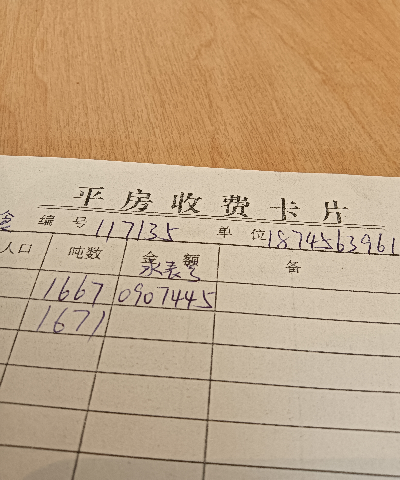 平房收费卡片
编号 117135 单位 1874563961
人口 吨数 金额 备
水表号
1667 0907445
1671